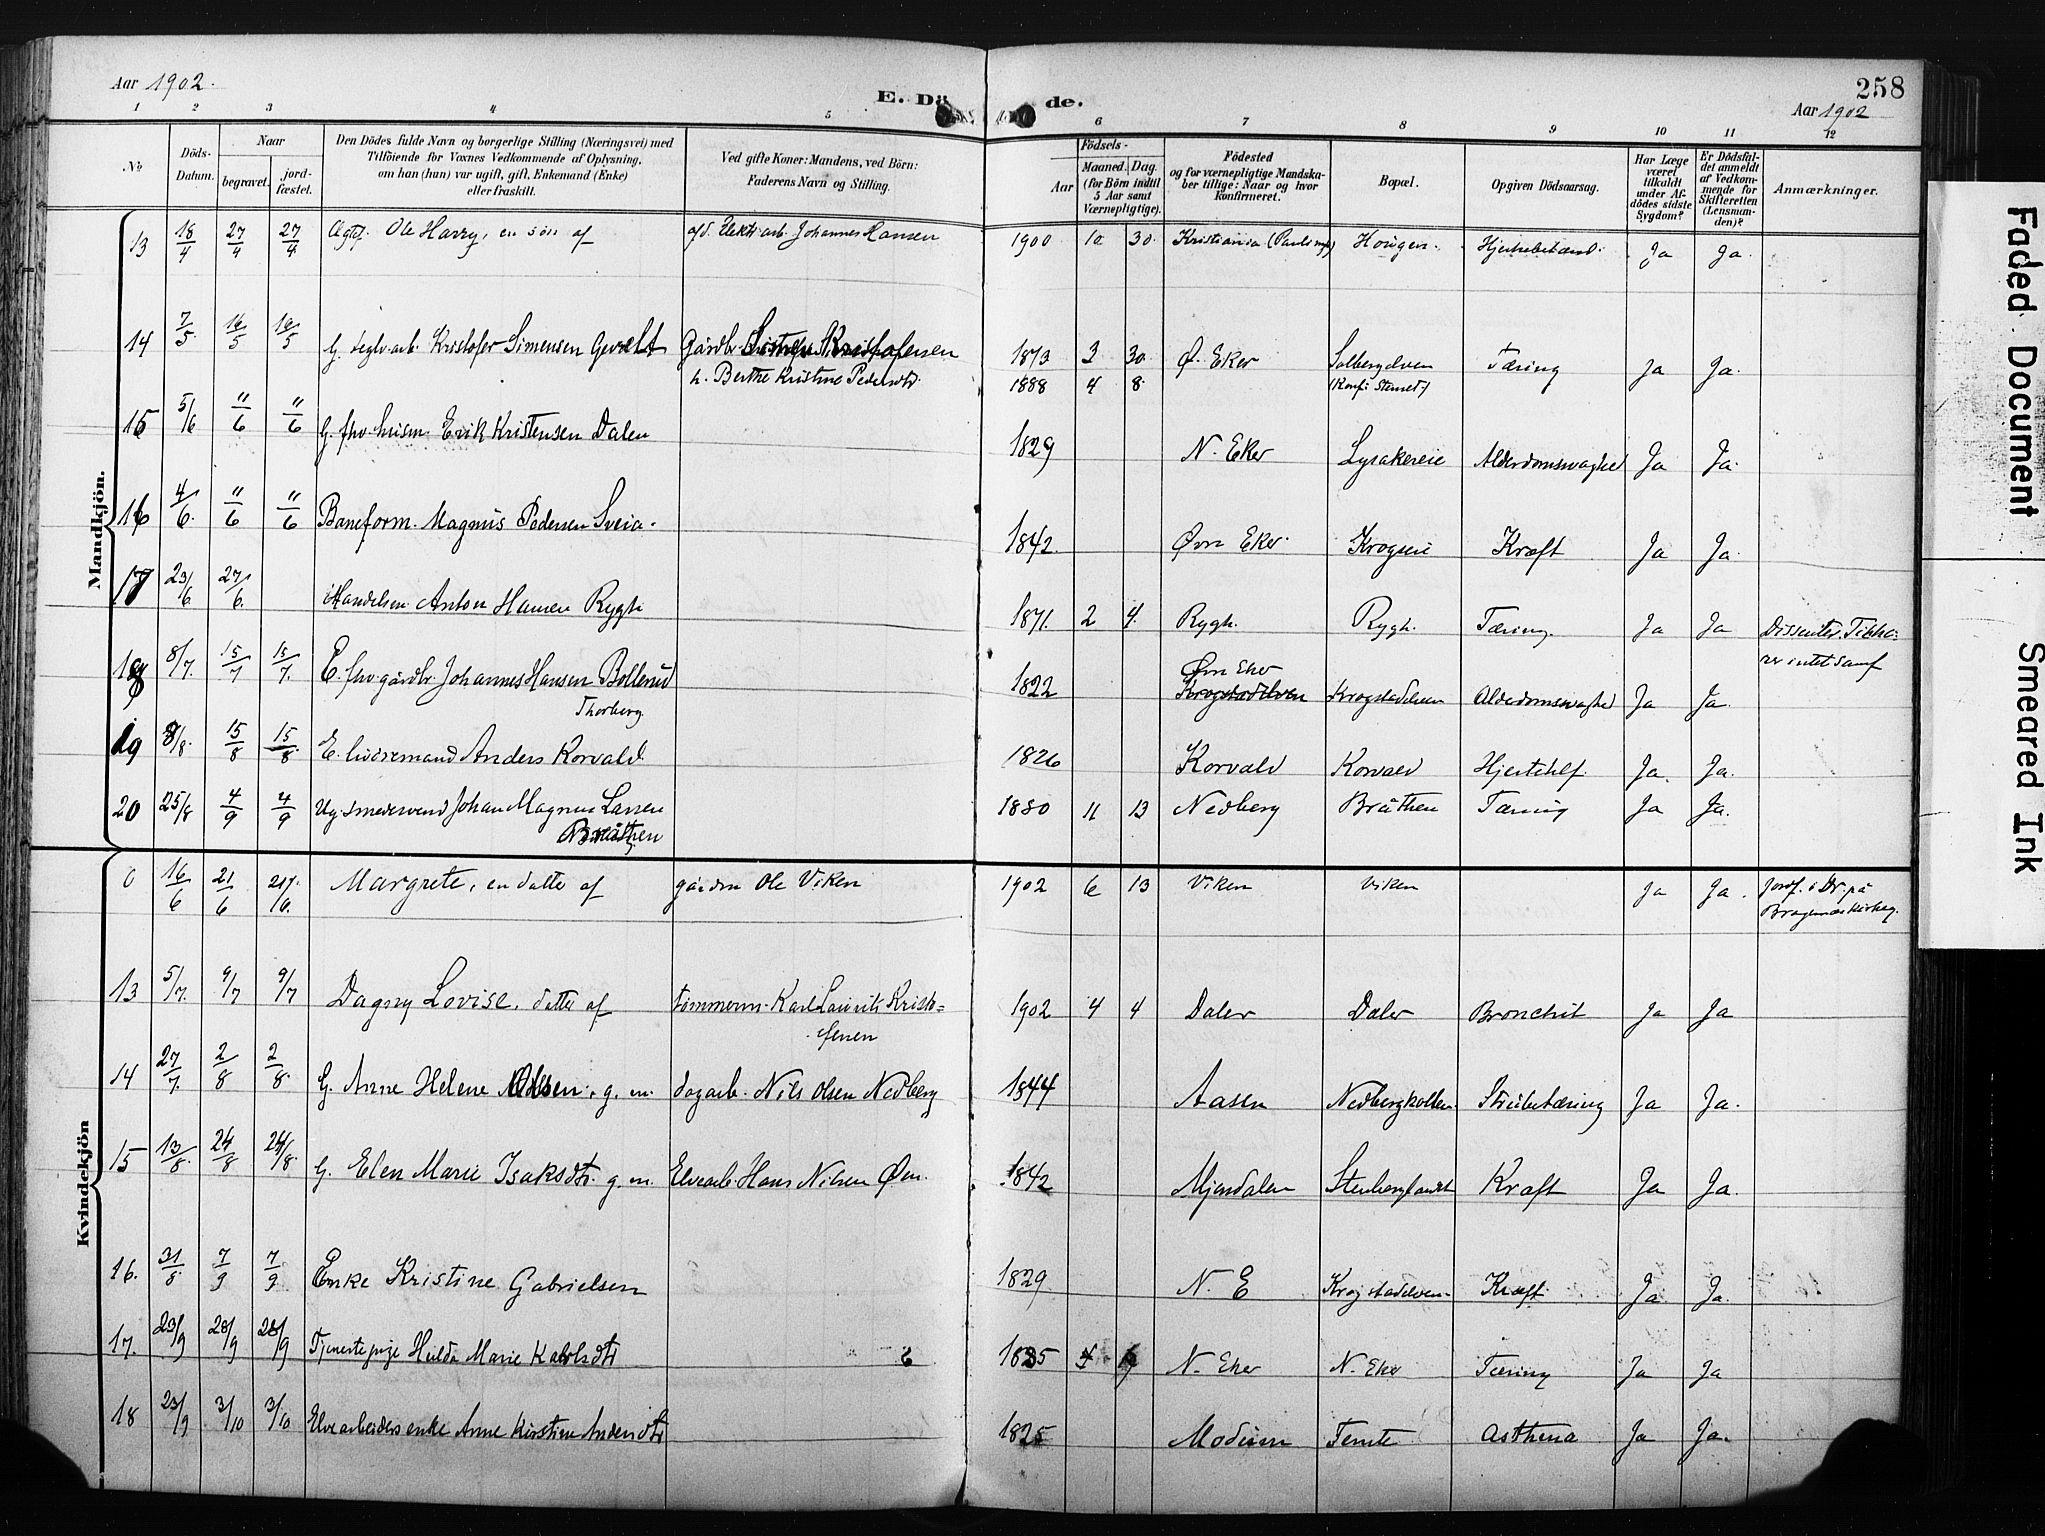 Aar 1902.
E. Dö de.
258
Aar 1902
1 2 3 4 5 6 7 8 9 10 11 12
No
Döds-Datum.
Naar
begravet.
jord-fæstet.
Den Dödes fulde Navn og borgerlige Stilling (Næringsvei) med
Tilföiende for Voxnes Vedkommende af Oplysning,
om han (hun) var ugift, gift, Enkemand (Enke)
eller fraskilt.
Ved gifte Koner: Mandens, ved Börn:
Faderens Navn og Stilling.
Födsels-
Aar
Maaned. Dag.
(for Börn indtil
5 Aar samt
Værnepligtige).
Födested
og for værnepligtige Mandska-
ber tillige: Naar og hvor
konfirmeret.
Bopæl.
Opgiven Dödsaarsag.
Har Læge
været
tilkaldt
under Af-
dödes sidste
Sygdom?
Er Dödsfal-
det anmeldt
af Vedkom-
mende for
Skifteretten
(Lensman-
den)?
Anmærkninger.
Mandkjön.
13 18/4 27/4 27/4 Ole Harry, en sön af Johannes Hansen 1900 10 30 Kristiania Hougen Ja Ja.
14 7/5 16/5 16/5 G. Kristofer Simensen Gårdbr. 1873 3 30 Ø. Eker Solbergelven Tæring Ja Ja.
h. Berthe Kristine Pedersdtr. 1888 4 8
15 5/6 11/6 11/6 G. fhv. husm. Erik Kristensen Dalen 1829 N. Eker Lysakereie Alderdomssvaghed Ja Ja.
16 4/6 11/6 11/6 Baneform. Magnus Pedersen Sveia. 1842. Øvre Eker Krogseie Kræft Ja Ja.
17 23/6 27/6 Anton Hansen Rygh 1871. 2 4. Rygh. Rygh. Tæring. Ja Ja Dissenter.
18 8/7 15/7 15/7 E. fhv gårdbr. Johannes Hansen Bollerud 1822 Øvre Eker
Thorberg. Krogstadelven Krogstadelven Alderdomssvaghed Ja Ja.
19 8/8 15/8 15/8 E. Anders Korvald. 1826 Korvald Korvald Ja. Ja.
20 25/8 4/9 4/9 Ug. smedesvend Johan Magnus Larsen 1880 11 13 Nedberg Bråthen Tæring Ja Ja.
Bråthen
Kvindekjön
0 16/6 21/6 Margrete, en datter af Ole Viken 1902 6 13 Viken Viken Ja Ja. jordf. i Dr. på
Bragernæs
13 5/7. 9/7 9/7 Dagny Lovise, datter af tömmerm. Karl Laurits Kristo=
fersen 1902 4 4 Daler Daler Bronchit Ja Ja
14 27/7. 2/8 2/8 G. Anne Helene g. m. dagarb. Nils Olsen Nedberg 1844 Aasen Nedbergkollen Strubetæring Ja Ja.
15 13/8. 24/8 24/8. G. Elen Marie Isaksdtr. g. m. Elvearb. Hans Nilsen Øen. 1842 Mjøndalen Kræft Ja Ja.
16. 31/8. 7/9 7/9 Enke Kristine Gabrielsen 1829 N. E Krogstadelven. Kræft. Ja Ja.
17. 23/9 28/9 28/9 Tjenestepige Hulda Marie Karlsdtr 6 1885 N. Eker N. Eker Tæring Ja Ja
18 23/9 3/10 3/10 Elvearbeiders enke Anne Kirstine Andersdtr 1825 Modum Temte Asthma Ja Ja.
Faded Document
Smeared Ink